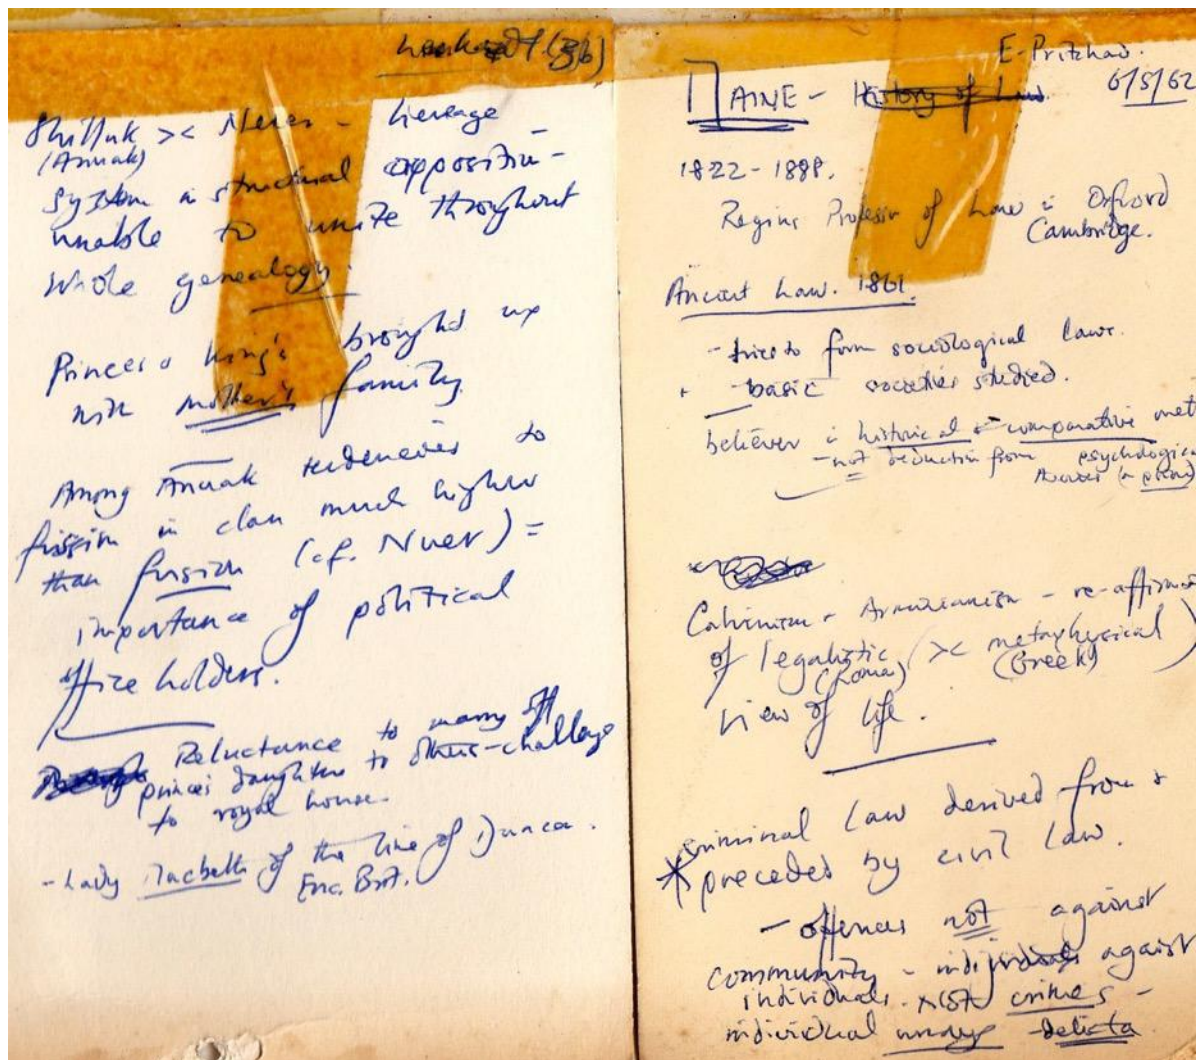 Shilluk >< Nuer - lineage
(Anuak)
system in structural opposition -
unable to unite throughout
whole genealogy.
Princes & King's brought up
with mother's family.
Among Anuak tendencies to
fission in clan much higher
than fusion (cf. Nuer) =
importance of political
office holders.
Reluctance to marry off
princes daughters to others - challenge
to royal house.
- Lady Macbeth of the line of Duncan.
Enc. Brit.
E-Pritchard.
MAINE - History of Law. 6/5/62
1822-1888.
Regius Professor of Law in Oxford
Cambridge.
Ancient Law. 1861.
- tries to form sociological laws.
- basic societies studied.
believer in historical & comparative meth
- not deduction from psychological
theories (a priori)
Calvinism & Arminianism - re-affirma
of legalistic (>< metaphysical)
(Roma) (Greek)
view of life.
* criminal law derived from &
preceded by civil law.
- offences not against
community - individuals against
individuals. not crimes -
individual wrongs - delicta